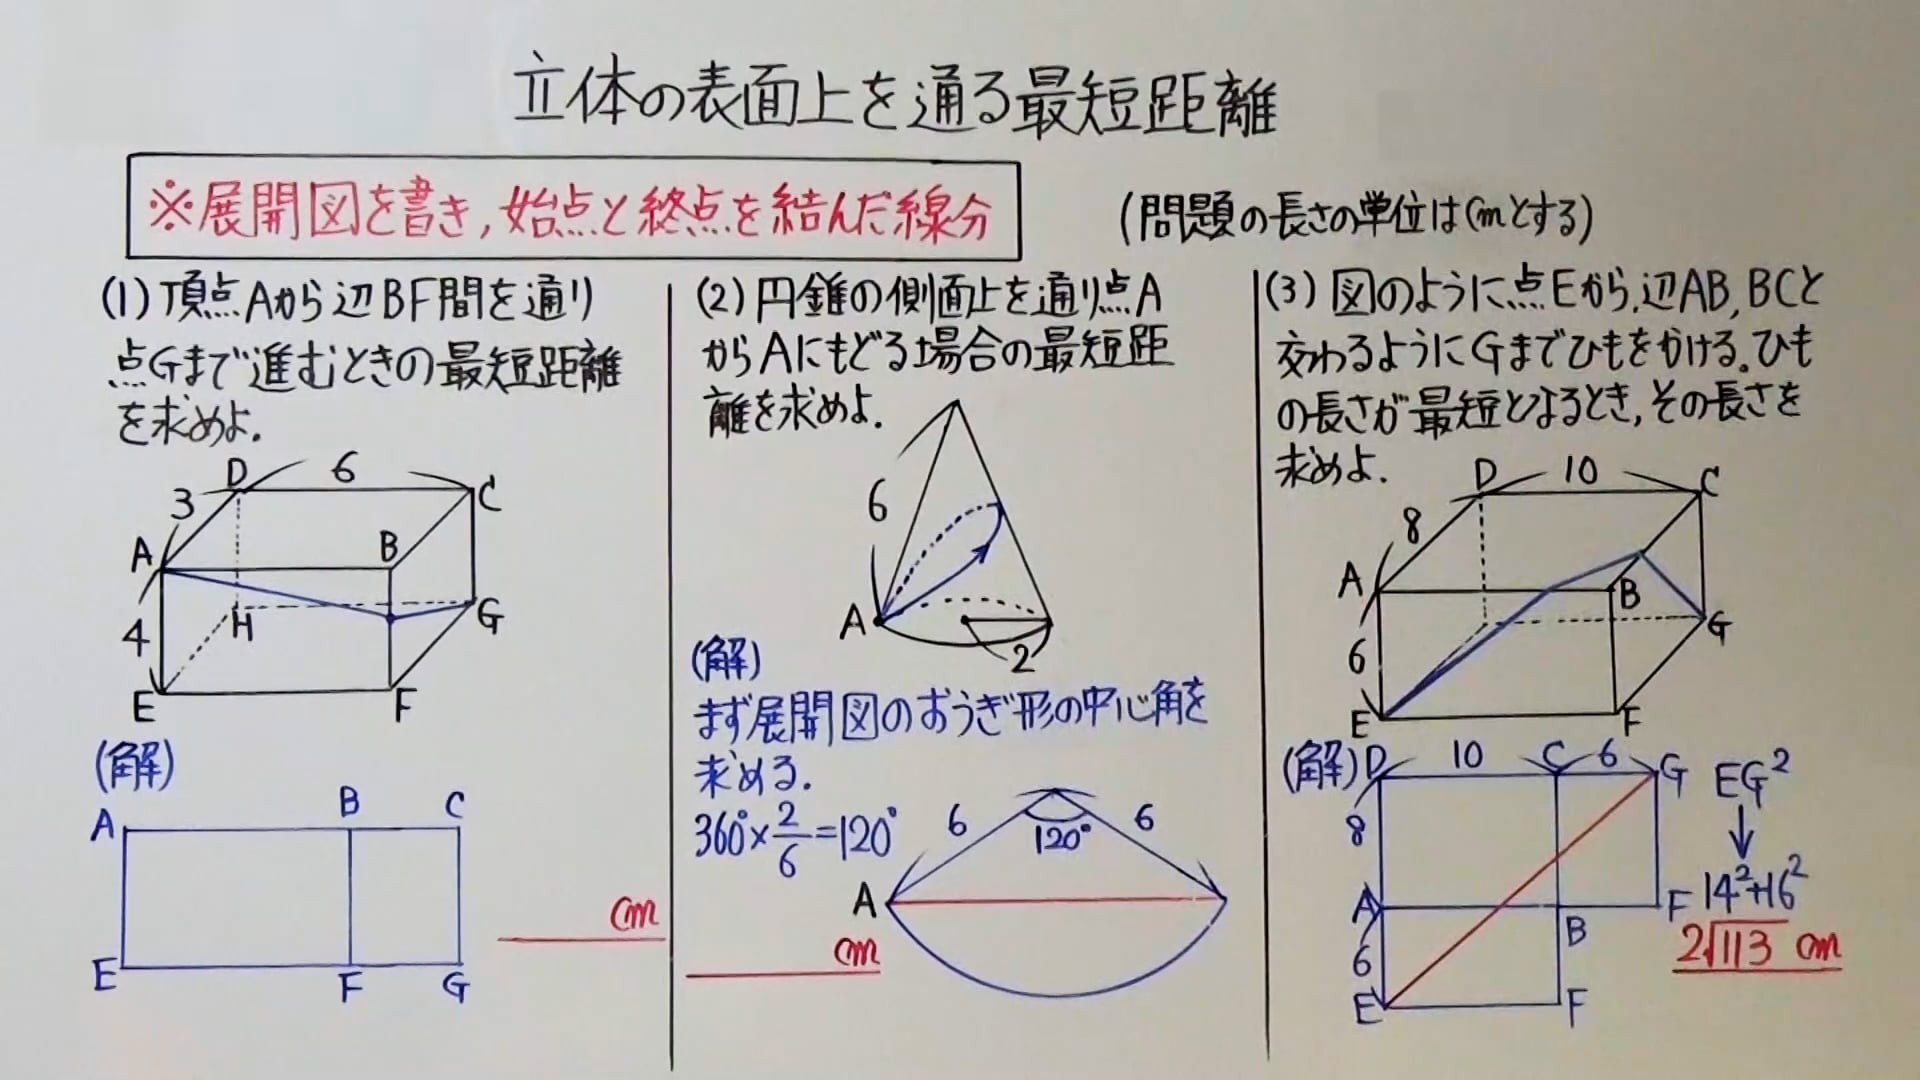 立体の表面上を通る最短距離
※展開図を書き,始点と終点を結んだ線分
(問題の長さの単位はcmとする)
(1)頂点Aから辺BF間を通り
点Gまで進むときの最短距離
を求めよ.
D 6 C
3
A B
4 H G
E F
(解)
A B C
E F G
cm
(2)円錐の側面上を通り点A
からAにもどる場合の最短距
離を求めよ.
6
A
2
(解)
まず展開図のおうぎ形の中心角を
求める.
360°×2/6=120°
6 120° 6
A
cm
(3)図のように点Eから,辺AB,BCと
交わるようにGまでひもをかける.ひも
の長さが最短となるとき,その長さを
求めよ.
D 10 C
8
A B
6 G
E F
(解)
D 10 C 6 G
8
A B F
6
E F
EG²
↓
14²+16²
2√113 cm